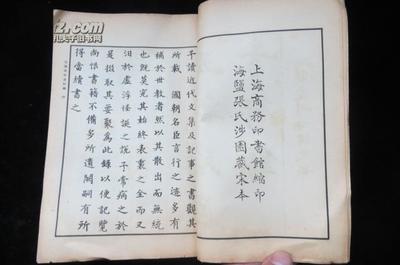 上海商務印書館縮印
海鹽張氏涉園藏宋本
予讀近代文集及記事之書觀其
所載國朝名臣言行之迹多有
補於世教者然以其散出而無統
也既莫究其始終表裏之全而又
汨於虛浮怪誕之說予常病之於
是掇取其要聚為此錄以便記覽
尚恨書籍不備多所遺闕嗣有所
得當續書之